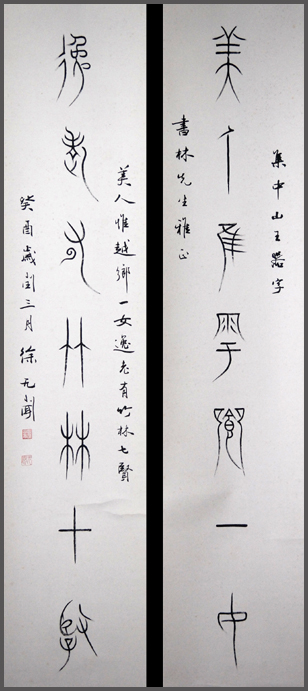 集中山王器字
美人隹雩鄉一女
書林先生雅正
美人惟越鄉一女逸老有竹林七賢
逸老有竹林七賢
癸酉歲閏三月徐无聞